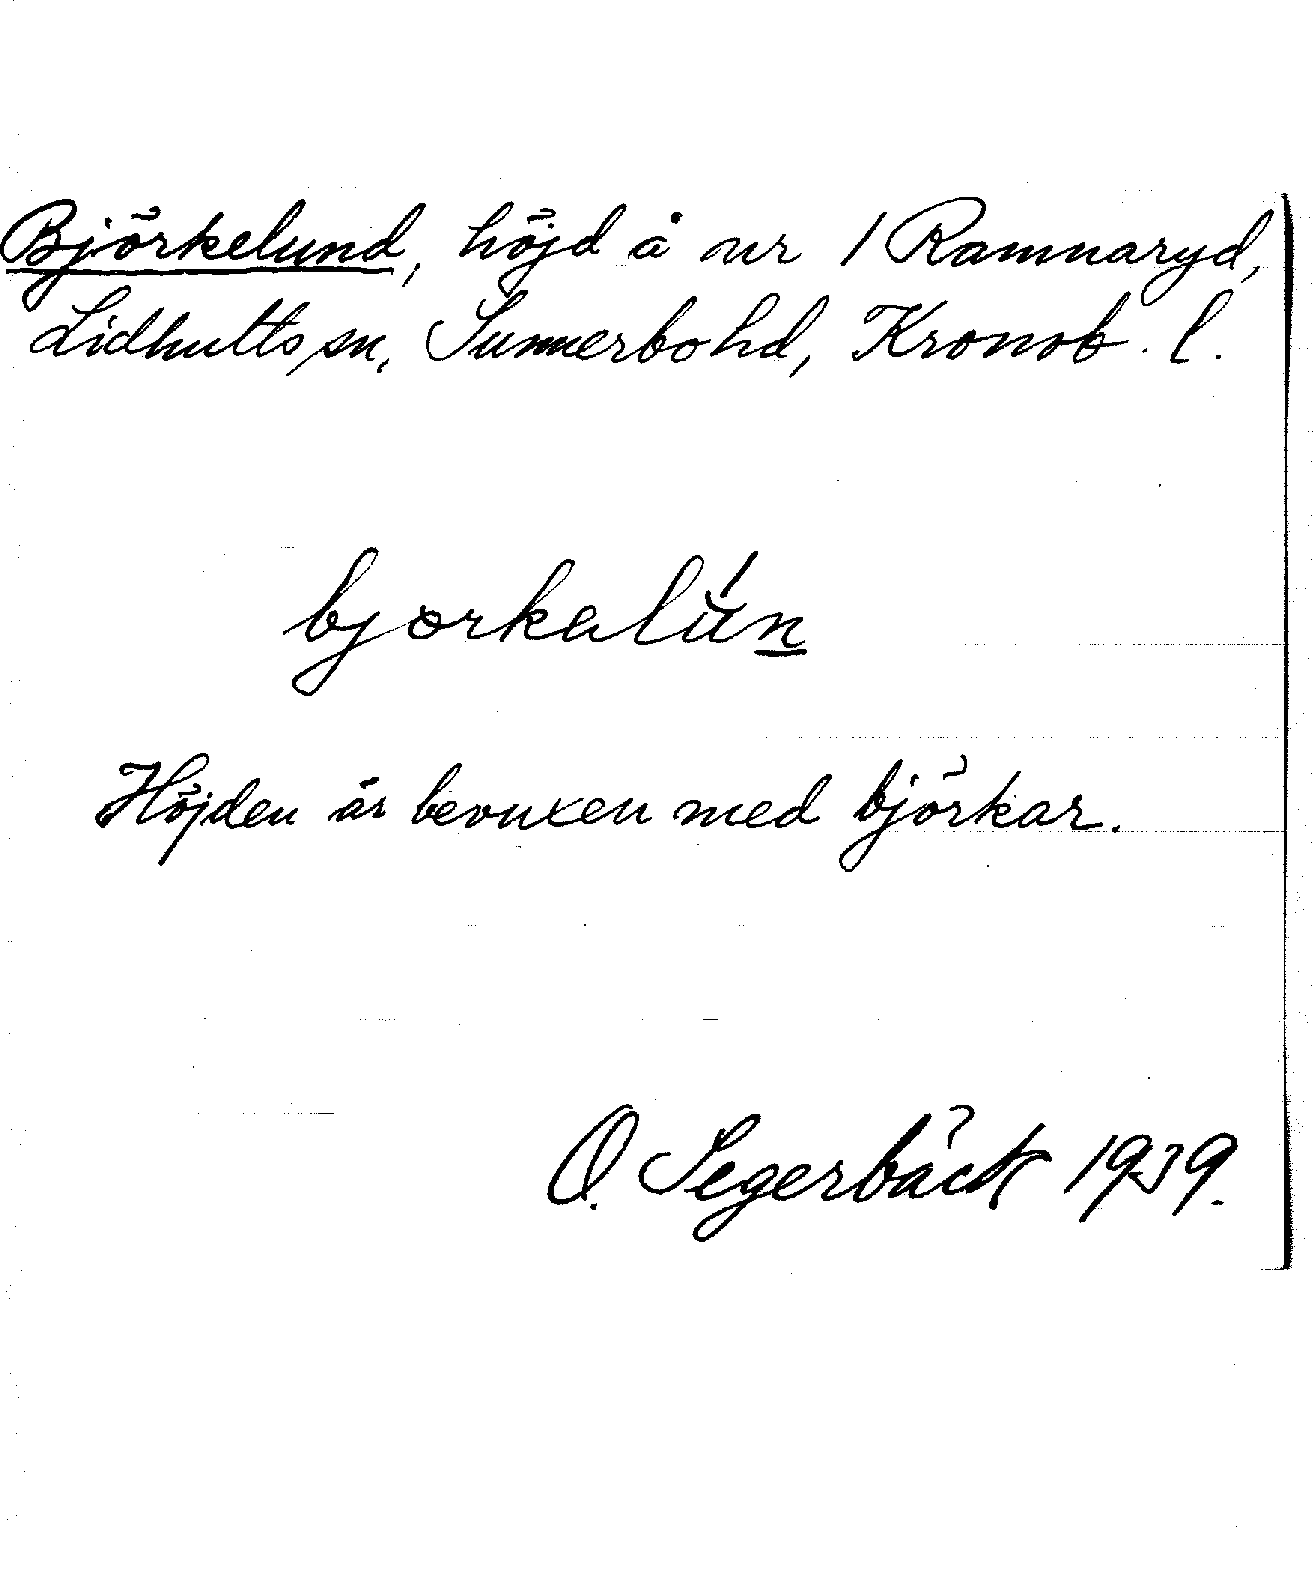 Björkelund, höjd å nr 1 Ramnaryd,
Lidhults sn, Sunnerbo hd, Kronob. l.
bjorkalún
Höjden är bevuxen med björkar.
O. Segerbäck 1939.